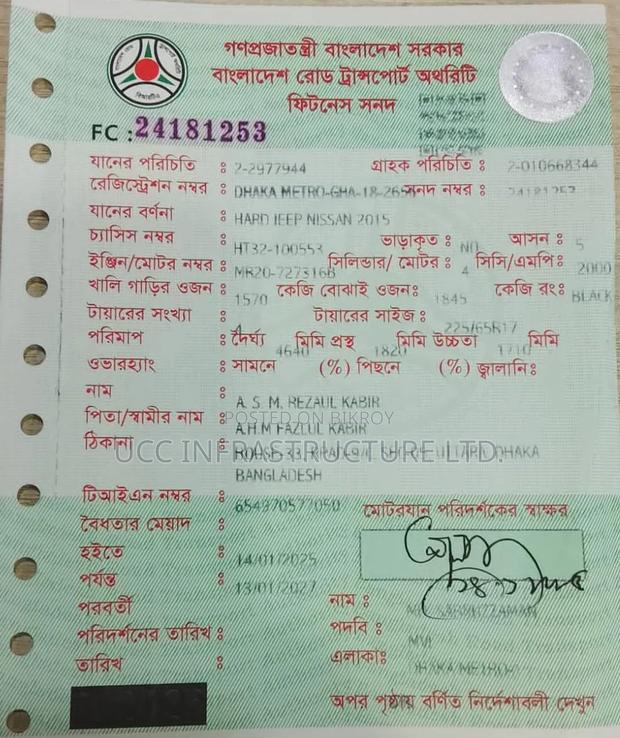 গণপ্রজাতন্ত্রী বাংলাদেশ সরকার
বাংলাদেশ রোড ট্রান্সপোর্ট অথরিটি
ফিটনেস সনদ
FC : 24181253
যানের পরিচিতি : 2-2977944 গ্রাহক পরিচিতি : 2-010668344
রেজিস্ট্রেশন নম্বর : DHAKA METRO-GHA-18-2656 সনদ নম্বর : 24181253
যানের বর্ণনা : HARD JEEP NISSAN 2015
চ্যাসিস নম্বর : HT32-100553 ভাড়াকৃত : NO আসন : 5
ইঞ্জিন/মোটর নম্বর : MR20-727316B সিলিন্ডার/ মোটর : 4 সিসি/এমপি: 2000
খালি গাড়ির ওজন : 1570 কেজি বোঝাই ওজন: 1845 কেজি রং: BLACK
টায়ারের সংখ্যা : 4 টায়ারের সাইজ : 225/65R17
পরিমাপ : দৈর্ঘ্য 4640 মিমি প্রস্থ 1820 মিমি উচ্চতা 1710 মিমি
ওভারহ্যাং : সামনে (%) পিছনে (%) জ্বালানি:
নাম : A. S. M. REZAUL KABIR
পিতা/স্বামীর নাম : A.H.M FAZLUL KABIR
POSTED ON BIKROY
ঠিকানা : DHAKA
UCC INFRASTRUCTURE LTD.
BANGLADESH
টিআইএন নম্বর : 654970577050 মোটরযান পরিদর্শকের স্বাক্ষর
বৈধতার মেয়াদ :
হইতে : 14/01/2025
পর্যন্ত : 13/01/2027
পরবর্তী নাম :
পরিদর্শনের তারিখ : পদবি : MVI
তারিখ : এলাকা: DHAKA METRO
অপর পৃষ্ঠায় বর্ণিত নির্দেশাবলী দেখুন